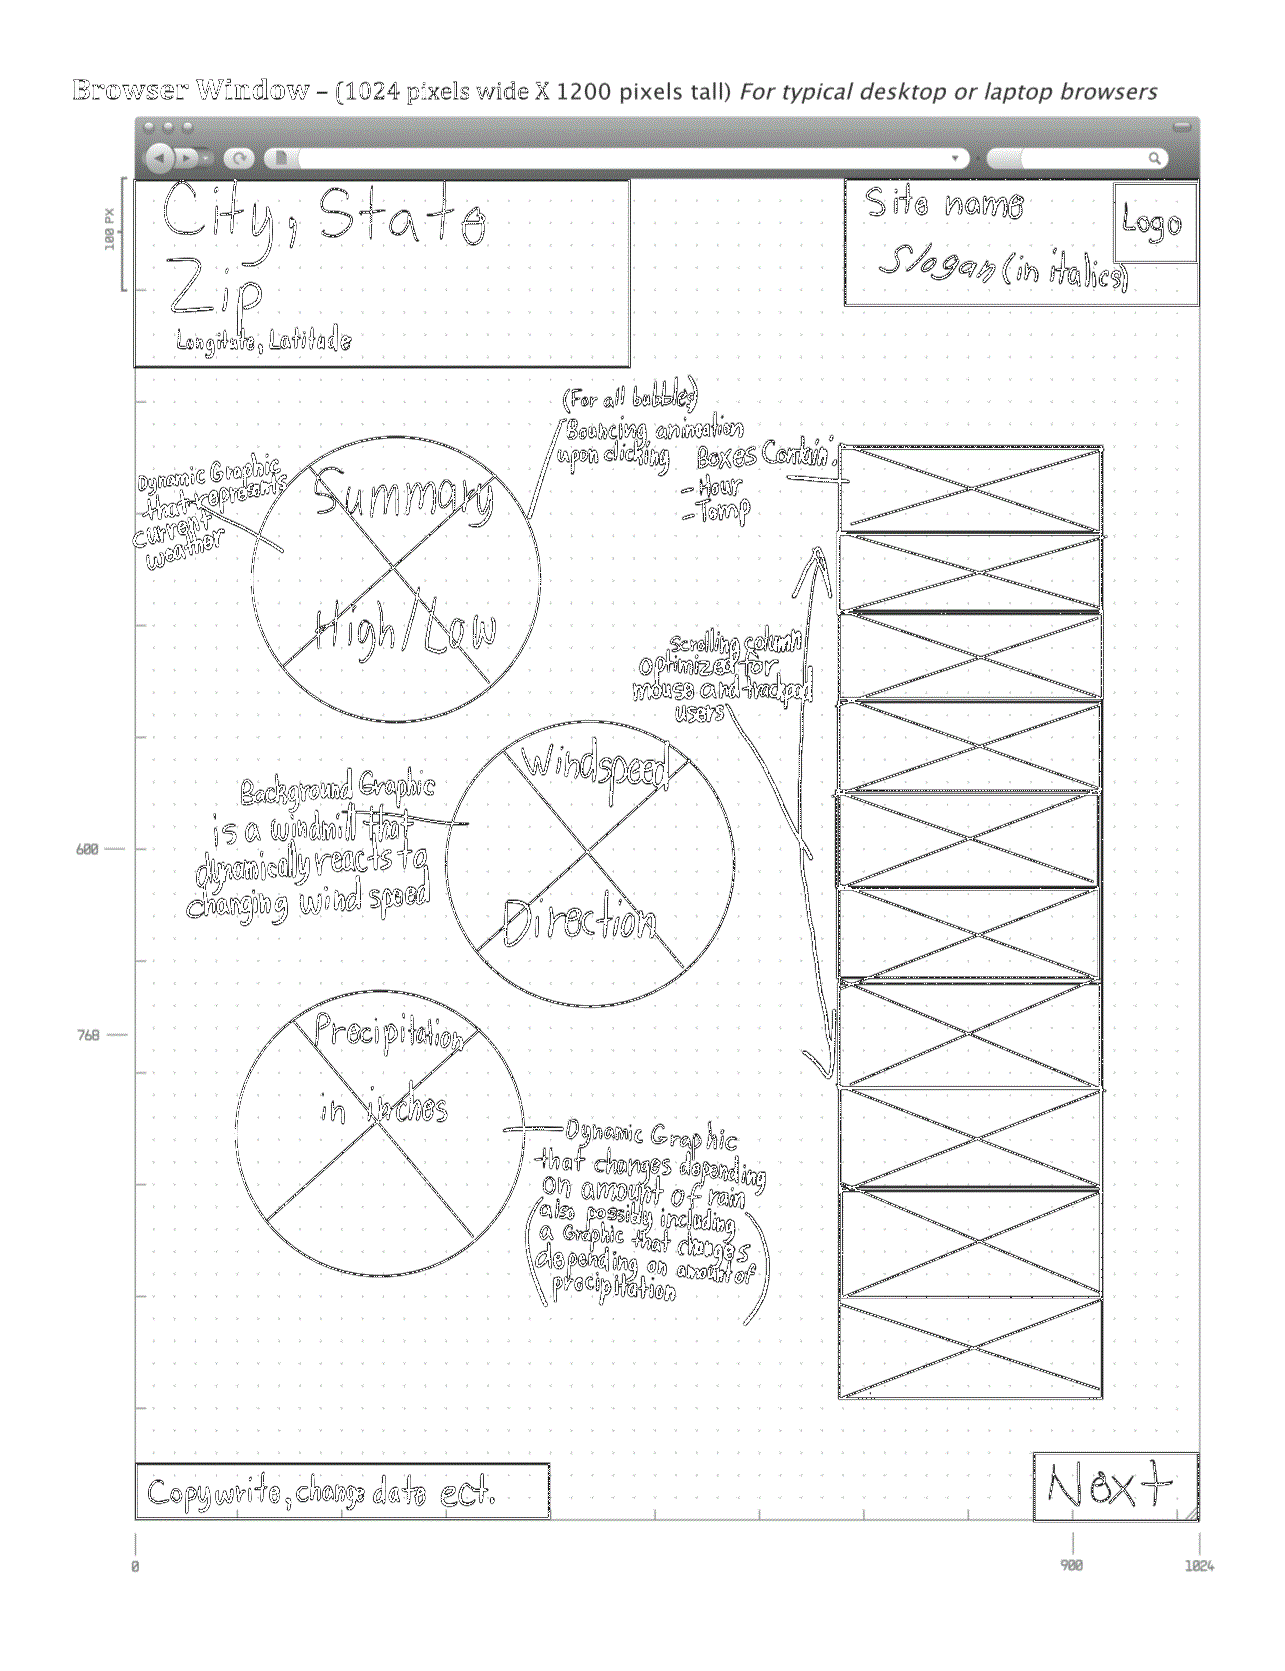 Browser Window – (1024 pixels wide X 1200 pixels tall) For typical desktop or laptop browsers
100 PX
City, State
Zip
Longitute, Latitude
Site name
Slogan (in italics)
Logo
(For all bubbles)
Bouncing animation
upon clicking
Boxes Contain:
- Hour
- Temp
Dynamic Graphic
that represents
current
weather
Summary
High/Low
Scrolling column
optimized for
mouse and trackpad
users
Windspeed
Direction
Background Graphic
is a windmill that
dynamically reacts to
changing wind speed
600
768
Precipitation
in inches
Dynamic Graphic
that changes depending
on amount of rain
(also possibly including
a Graphic that changes
depending on amount of
precipitation)
Copywrite, change date ect.
Next
0
900
1024